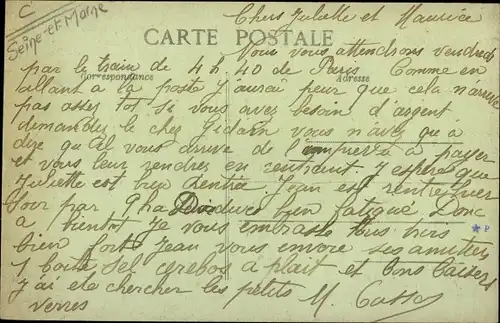 C
Seine-et-Marne
Chers Juliette et Maurice
CARTE POSTALE
Nous vous attendrons vendredi
par le train de 4h.40 de Paris Comme en
Correspondance Adresse
allant a la poste J'aurai peur que cela n'arrive
pas assez tot Si vous avez besoin d'argent
demandez le chez vous n'avez qu'à
dire qu'il vous arrive de l' à payer
et vous leur rendrez en rentrant. J'espère que
Juliette est bien rentrée Jean est rentré hier
soir par bien fatigué Donc
a bientot Je vous embrasse tous
bien fort Jean vous envoie ses amitiés
1 boite Sel cerebos a plait et bons baisers
J'ai été chercher les petits M.
verres
* P